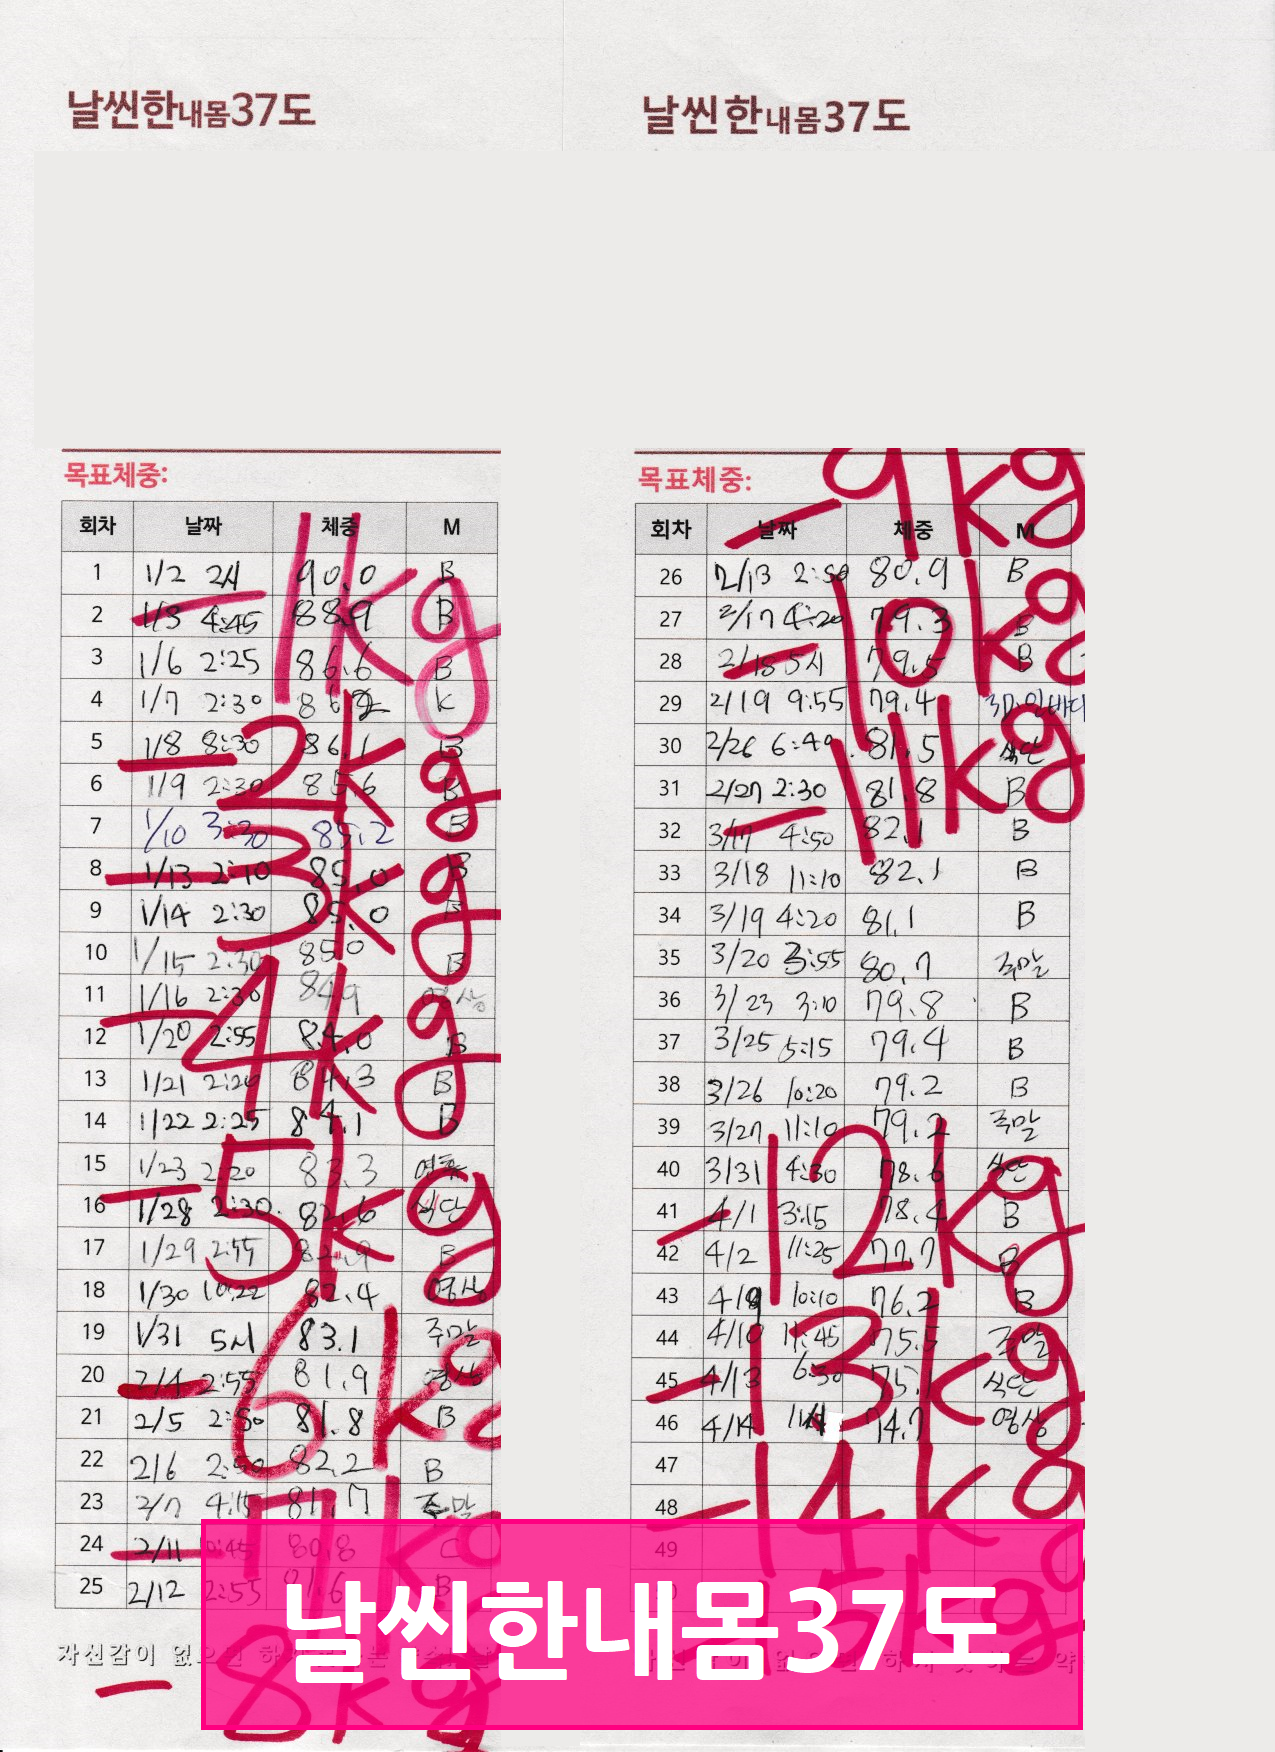 날씬한내몸37도
목표체중:
회차 날짜 체중 M
1 1/2 2시 90.0 B
2 1/3 4:45 88.9 B
3 1/6 2:25 86.6 B
4 1/7 2:30 K
5 1/8 8:30 86.1 B
6 1/9 2:30 85.6 B
7 1/10 3:30 85.2 B
8 1/13 2:10 85.0 B
9 1/14 2:30 85.0 B
10 1/15 2:30 85.0 B
11 1/16 2:30 84.9 영상
12 1/20 2:55 84.0 B
13 1/21 2:20 84.3 B
14 1/22 2:25 84.1 B
15 1/23 2:20 83.3
16 1/28 2:30. 82.6 식단
17 1/29 2:55 82.9 B
18 1/30 10:22 82.4 영상
19 1/31 5시 83.1 주말
20 2/4 2:55 81.9 영상
21 2/5 2:50 81.8 B
22 2/6 2:50 82.2 B
23 2/7 4:15 81.7 주말
24 2/11 80.8 C
25 2/12 2:55 81.6 B
자신감이 없으면
-1kg
-2kg
-3kg
-4kg
-5kg
-6kg
-7kg
-8kg
날씬한내몸37도
목표체중:
회차 날짜 체중 M
26 2/13 2:50 80.9 B
27 2/17 4:20 79.3 B
28 2/18 5시 79.5 B
29 2/19 9:55 79.4 37.인바디
30 2/26 6:40 81.5 식단
31 2/27 2:30 81.8 B
32 3/17 4:50 82.1 B
33 3/18 11:10 82.1 B
34 3/19 4:20 81.1 B
35 3/20 3:55 80.7 주말
36 3/23 3:10 79.8 B
37 3/25 5:15 79.4 B
38 3/26 10:20 79.2 B
39 3/27 11:10 79.2 주말
40 3/31 4:30 78.6 식단
41 4/1 3:15 78.4 B
42 4/2 11:25 77.7 B
43 4/9 10:10 76.2 B
44 4/10 11:45 75.5 주말
45 4/13 6:30 75.1 식단
46 4/14 74.7 영상
47
48
49
-9kg
-10kg
-11kg
-12kg
-13kg
-14kg
날씬한내몸37도